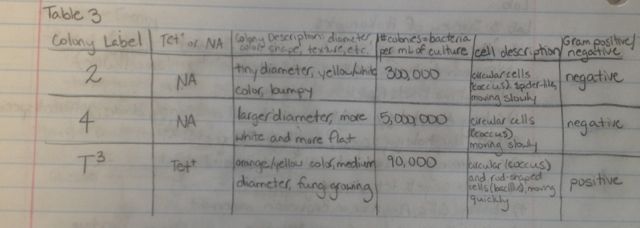 Table 3
Colony Label | Tet+ or NA | Colony Description: diameter, color, shape, texture, etc. | # colonies = bacteria per mL of culture | cell description | Gram positive/negative
2 | NA | tiny diameter, yellow/white color, bumpy | 300,000 | circular cells (coccus), spider-like, moving slowly | negative
4 | NA | larger diameter, more white and more flat | 5,000,000 | circular cells (coccus) moving slowly | negative
T3 | Tet+ | orange/yellow color, medium diameter, fungi growing | 90,000 | circular (coccus) and rod-shaped cells (bacillus), moving quickly | positive